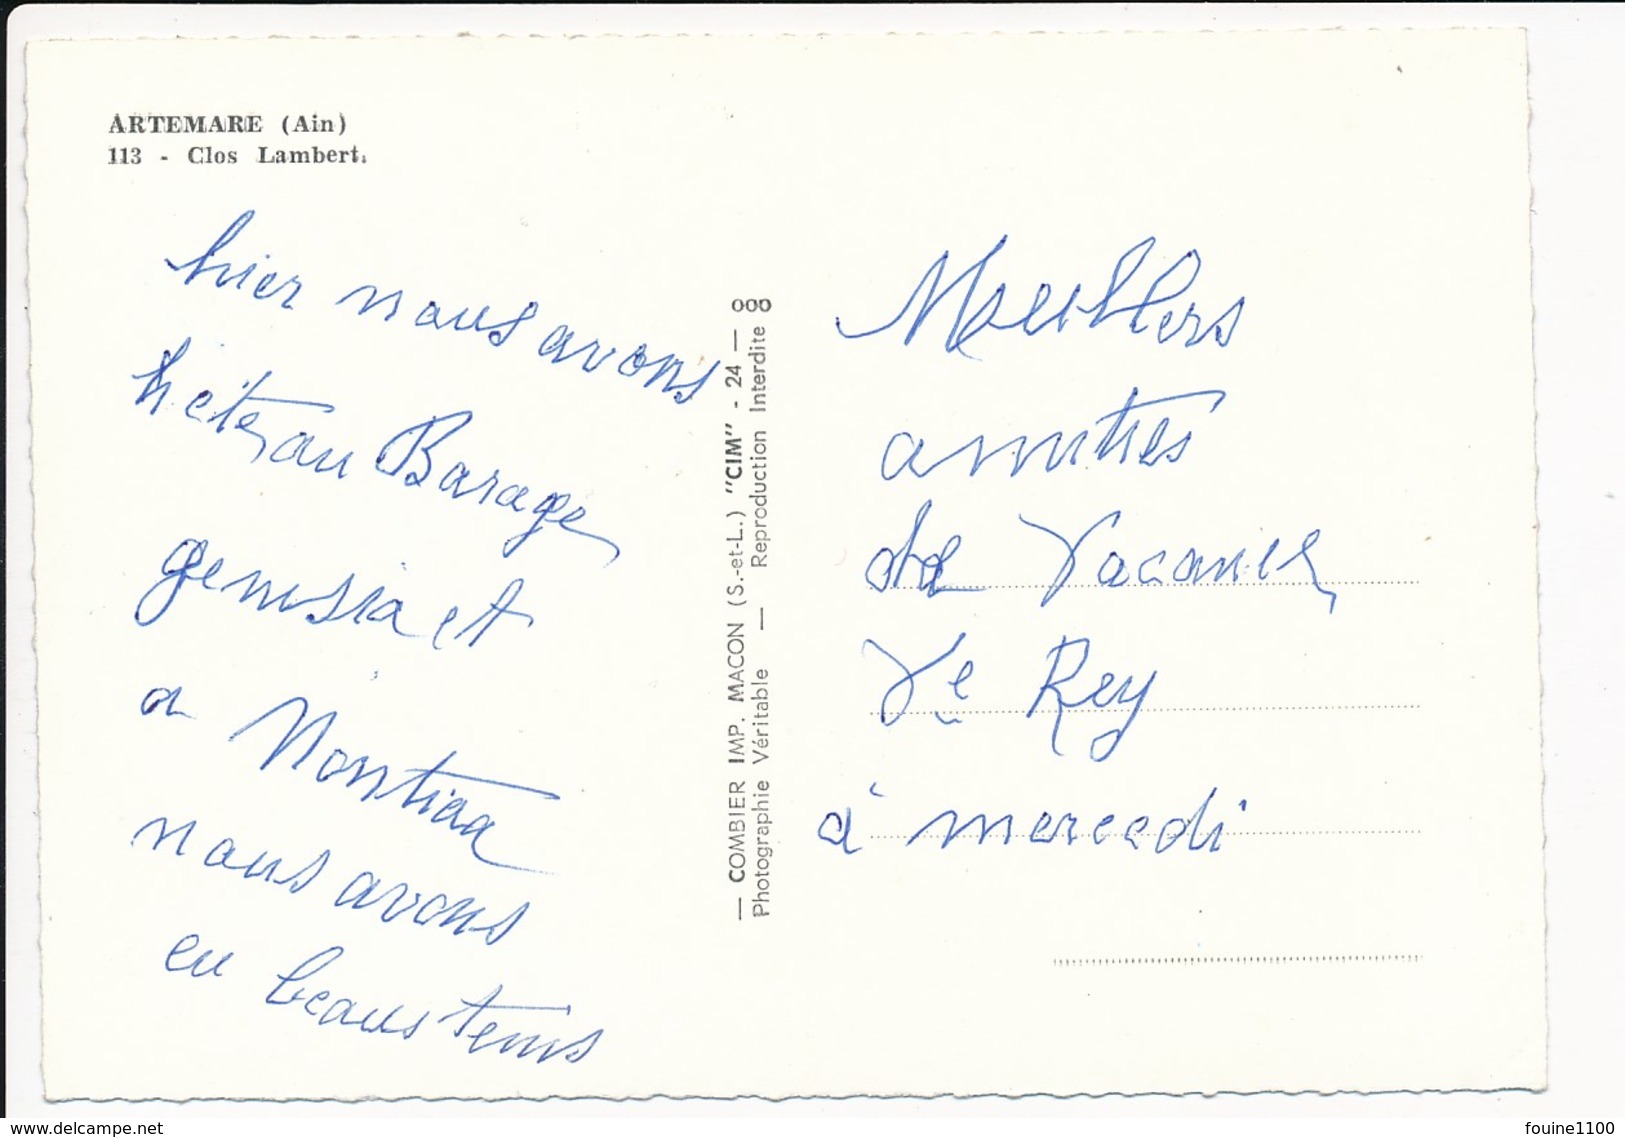 ARTEMARE (Ain)
113 - Clos Lambert.
hier nous avons
hétéz au Barage
genissia et
a Montiaa
nous avons
eu beaus tems
— COMBIER IMP. MACON (S.-et-L.) "CIM" - 24 —
Photographie Véritable — Reproduction Interdite
Meullers
amities
de Vacances
Ve Rey
à mercedi
www.delcampe.net
fouine1100